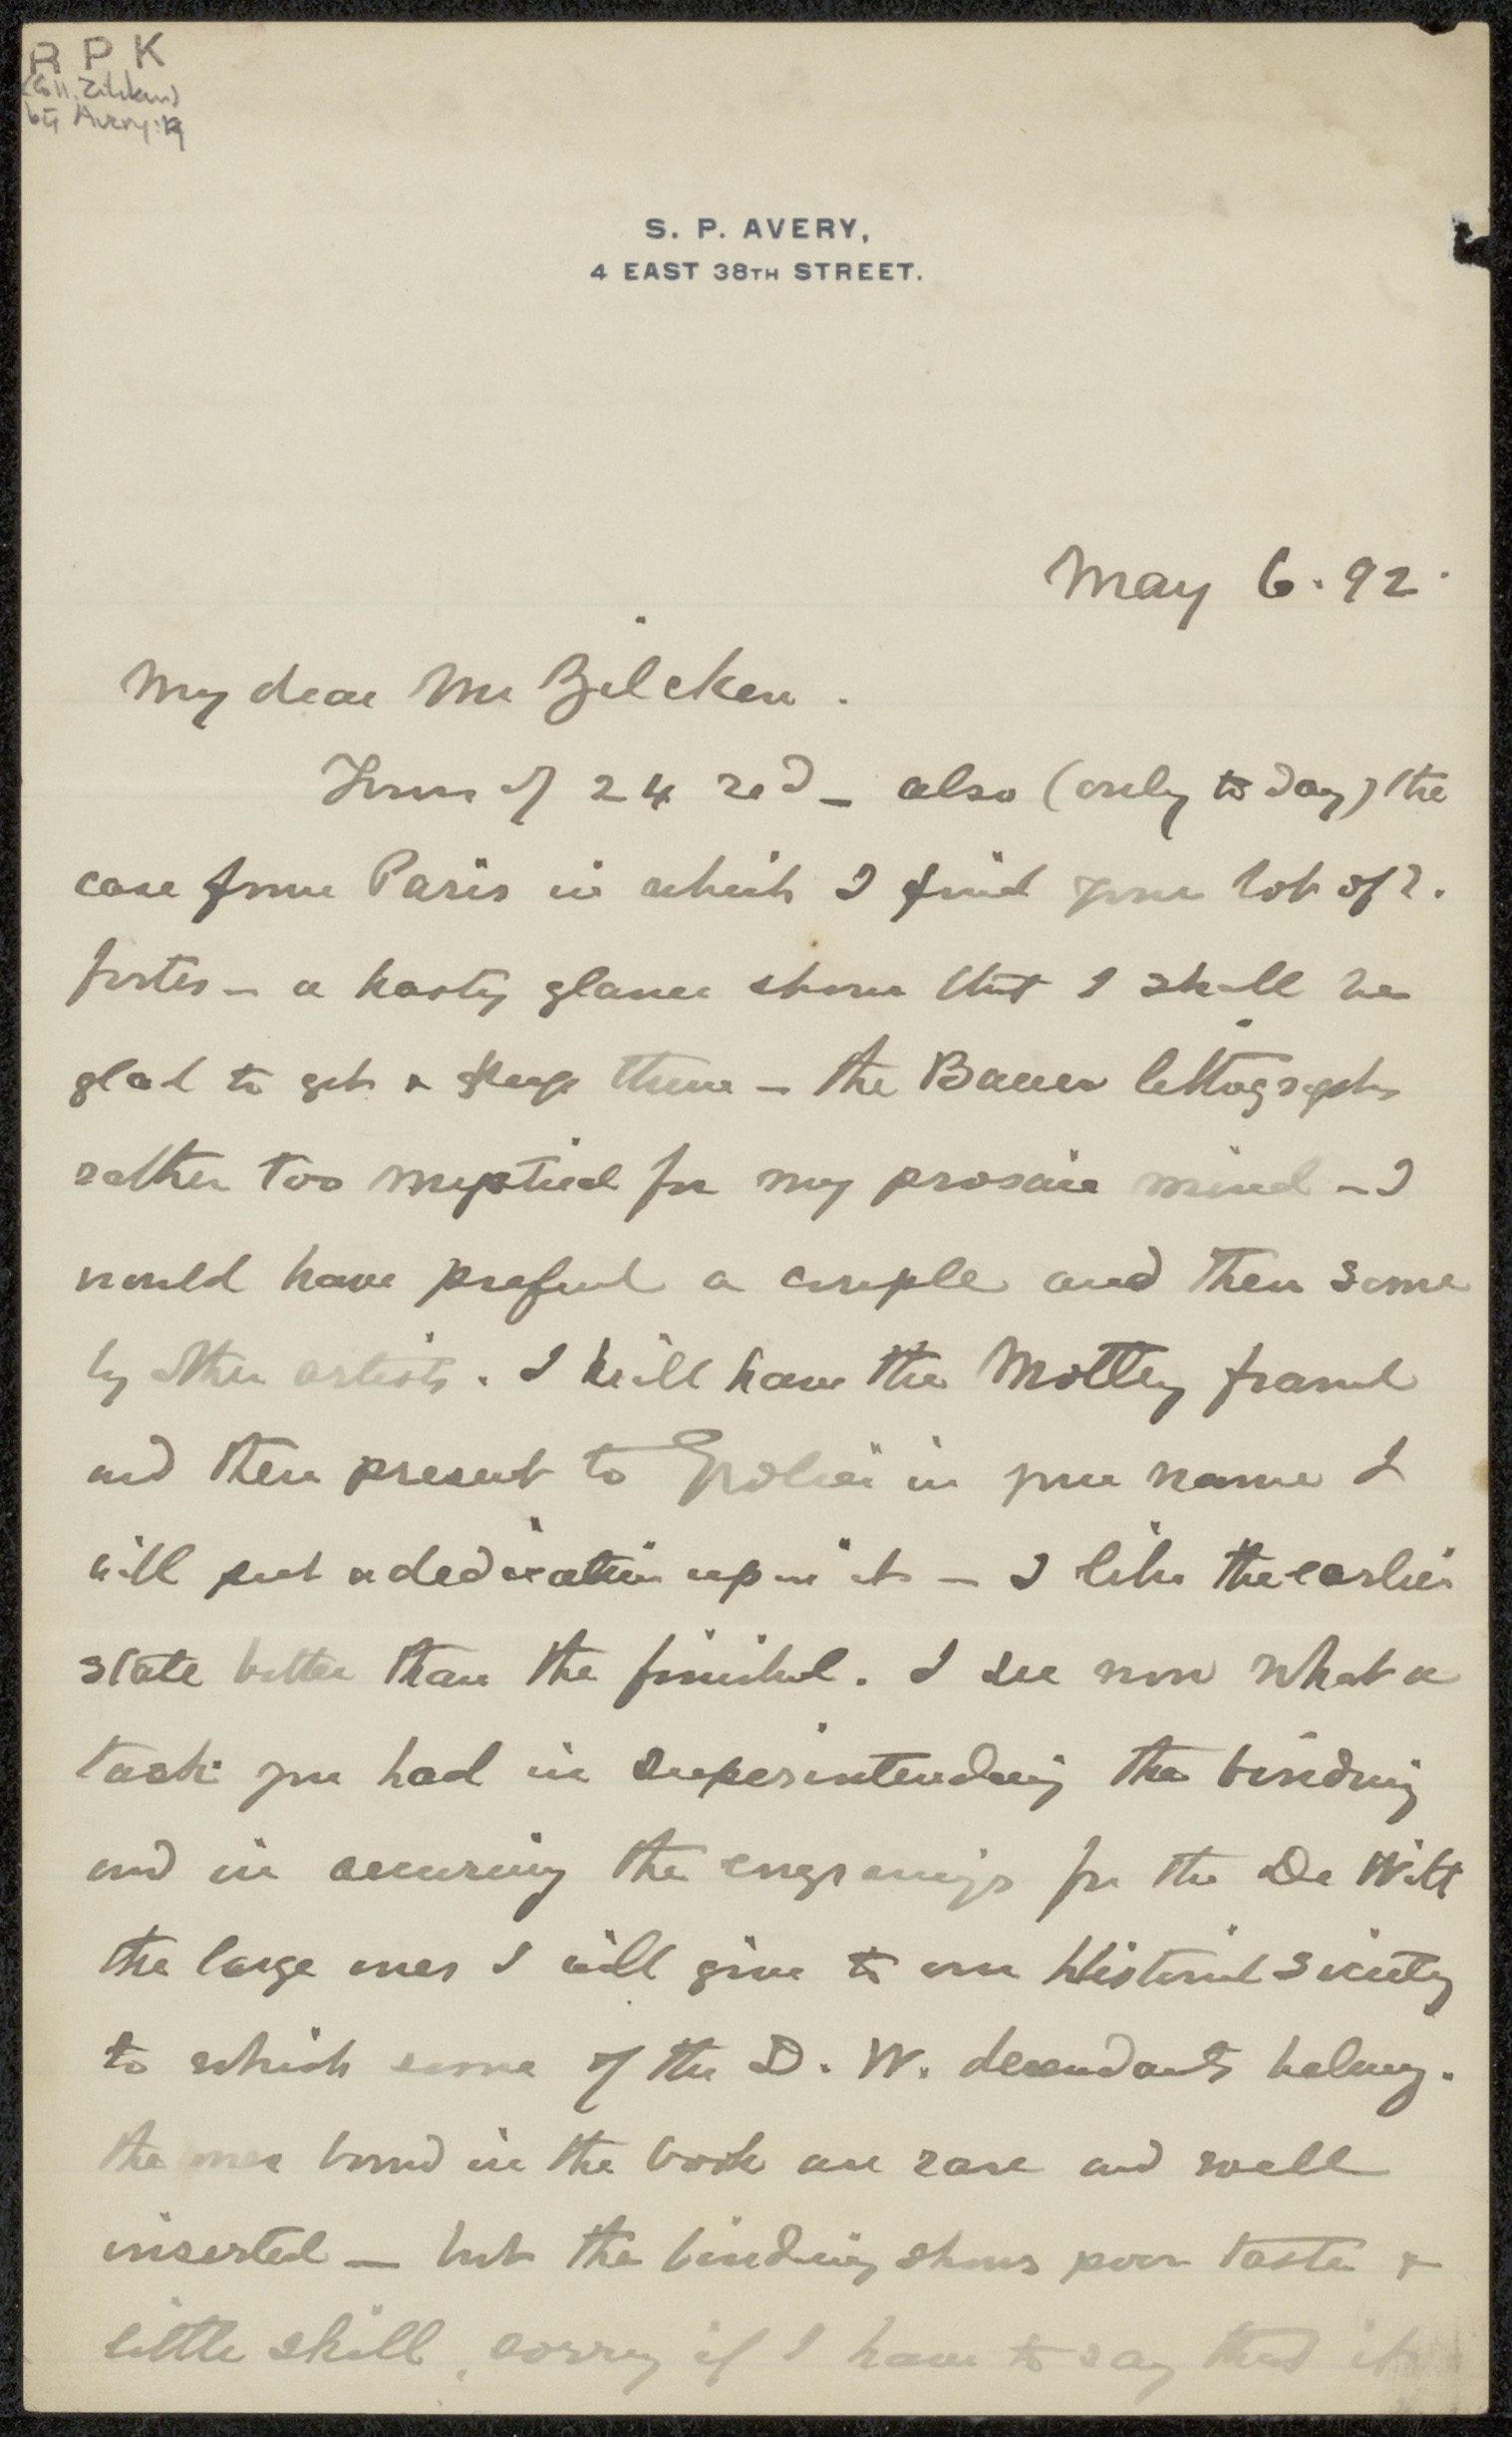 R P K
(Coll. Zilcken)
S. P. AVERY,
4 EAST 38TH STREET.
May 6. 92.
My dear Mr Zilcken.
Yours of 24 recd - also (only to day) the
case from Paris in which I find your lot of
fortes - a hasty glance shows that I shall be
glad to get & keep them - the Bauer lithographs
rather too mystical for my prosaic mind - I
would have prefered a couple and then some
by other artists. I will have the Mottley framed
and then present to Grolier in your name I
will put a dedication upon it - I like the earlier
state better than the finished. I see now what a
task you had in superintending the binding
and in securing the engravings for the De Witt
the large ones I will give to our Historical Society
to which some of the D. W. descendants belong.
the ones bound in the book are rare and well
inserted - but the binding shows poor taste &
little skill, sorry if I have to say that it